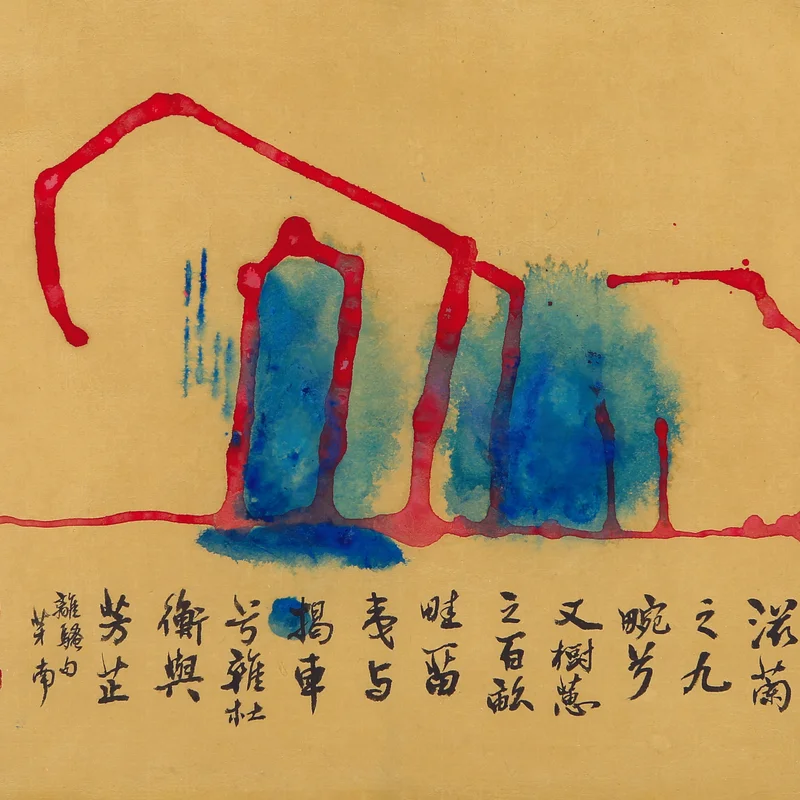 滋蘭
之九
畹兮
又樹蕙
之百畝
畦留
夷与
揭車
兮雜杜
衡與
芳芷
離騷句
南